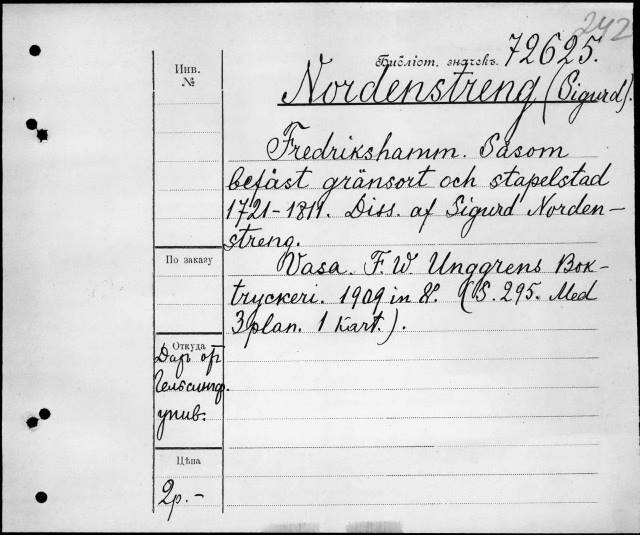 242
Библіот. значекъ. 72625.
Nordenstreng (Sigurd).
Инв.
№
Fredrikshamm. Såsom
befäst gränsort och stapelstad
1721-1811. Diss. af Sigurd Norden-
streng.
По заказу
Vasa. F. W. Unggrens Bok-
tryckeri. 1909 in 8°. (S. 295. Med
3 plan. 1 Kart.).
Откуда
Даръ от
Гельсингф.
унив.
Цѣна
2р.-